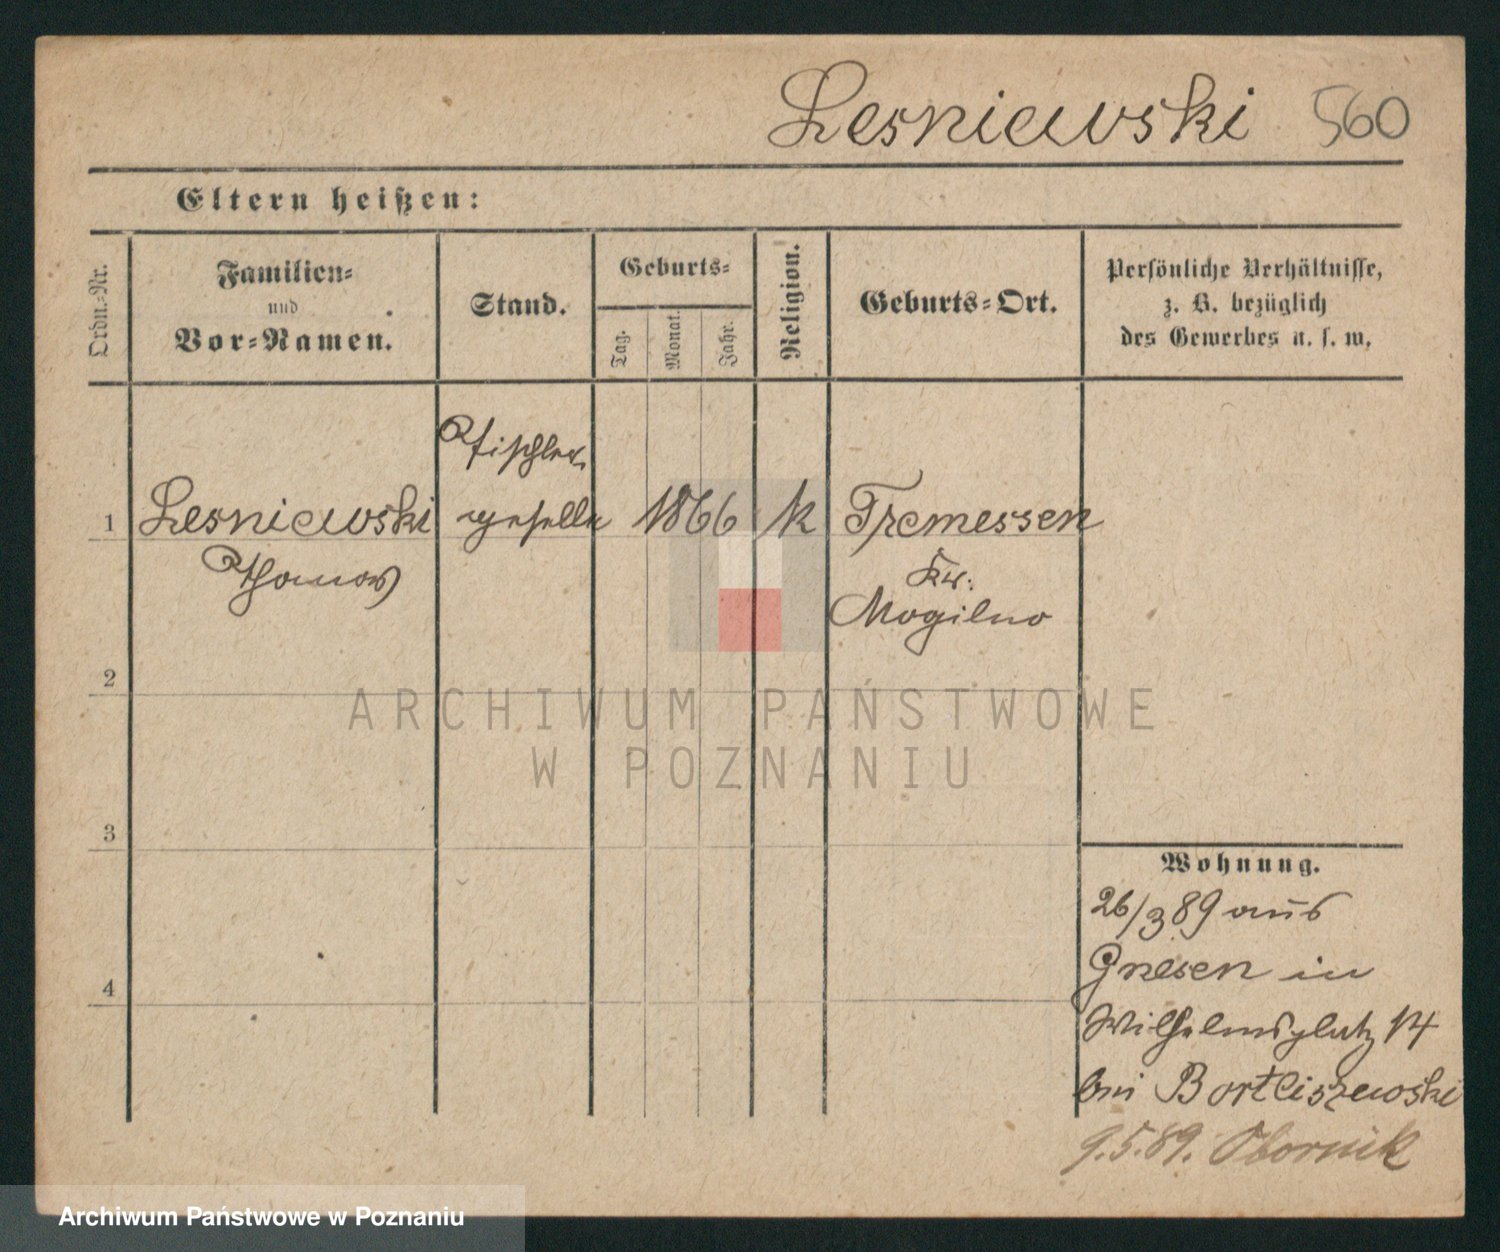 Lesniewski 560
Eltern heißen:
Ordn.-Nr.
Familien-
und
Vor-Namen.
Stand.
Geburts-
Tag.
Monat.
Jahr.
Religion.
Geburts-Ort.
Persönliche Verhältnisse,
z. B. bezüglich
des Gewerbes u. s. w.
Tischler
1 Lesniewski geselle 1866 k Tremessen
Thomas
Kr.
Mogilno
2
ARCHIWUM PAŃSTWOWE
W POZNANIU
3
Wohnung.
26/3 89 aus
4
Gnesen in
Wilhelmsplatz 14
bei Bortliszewski
9.5.89. Obornik
Archiwum Państwowe w Poznaniu